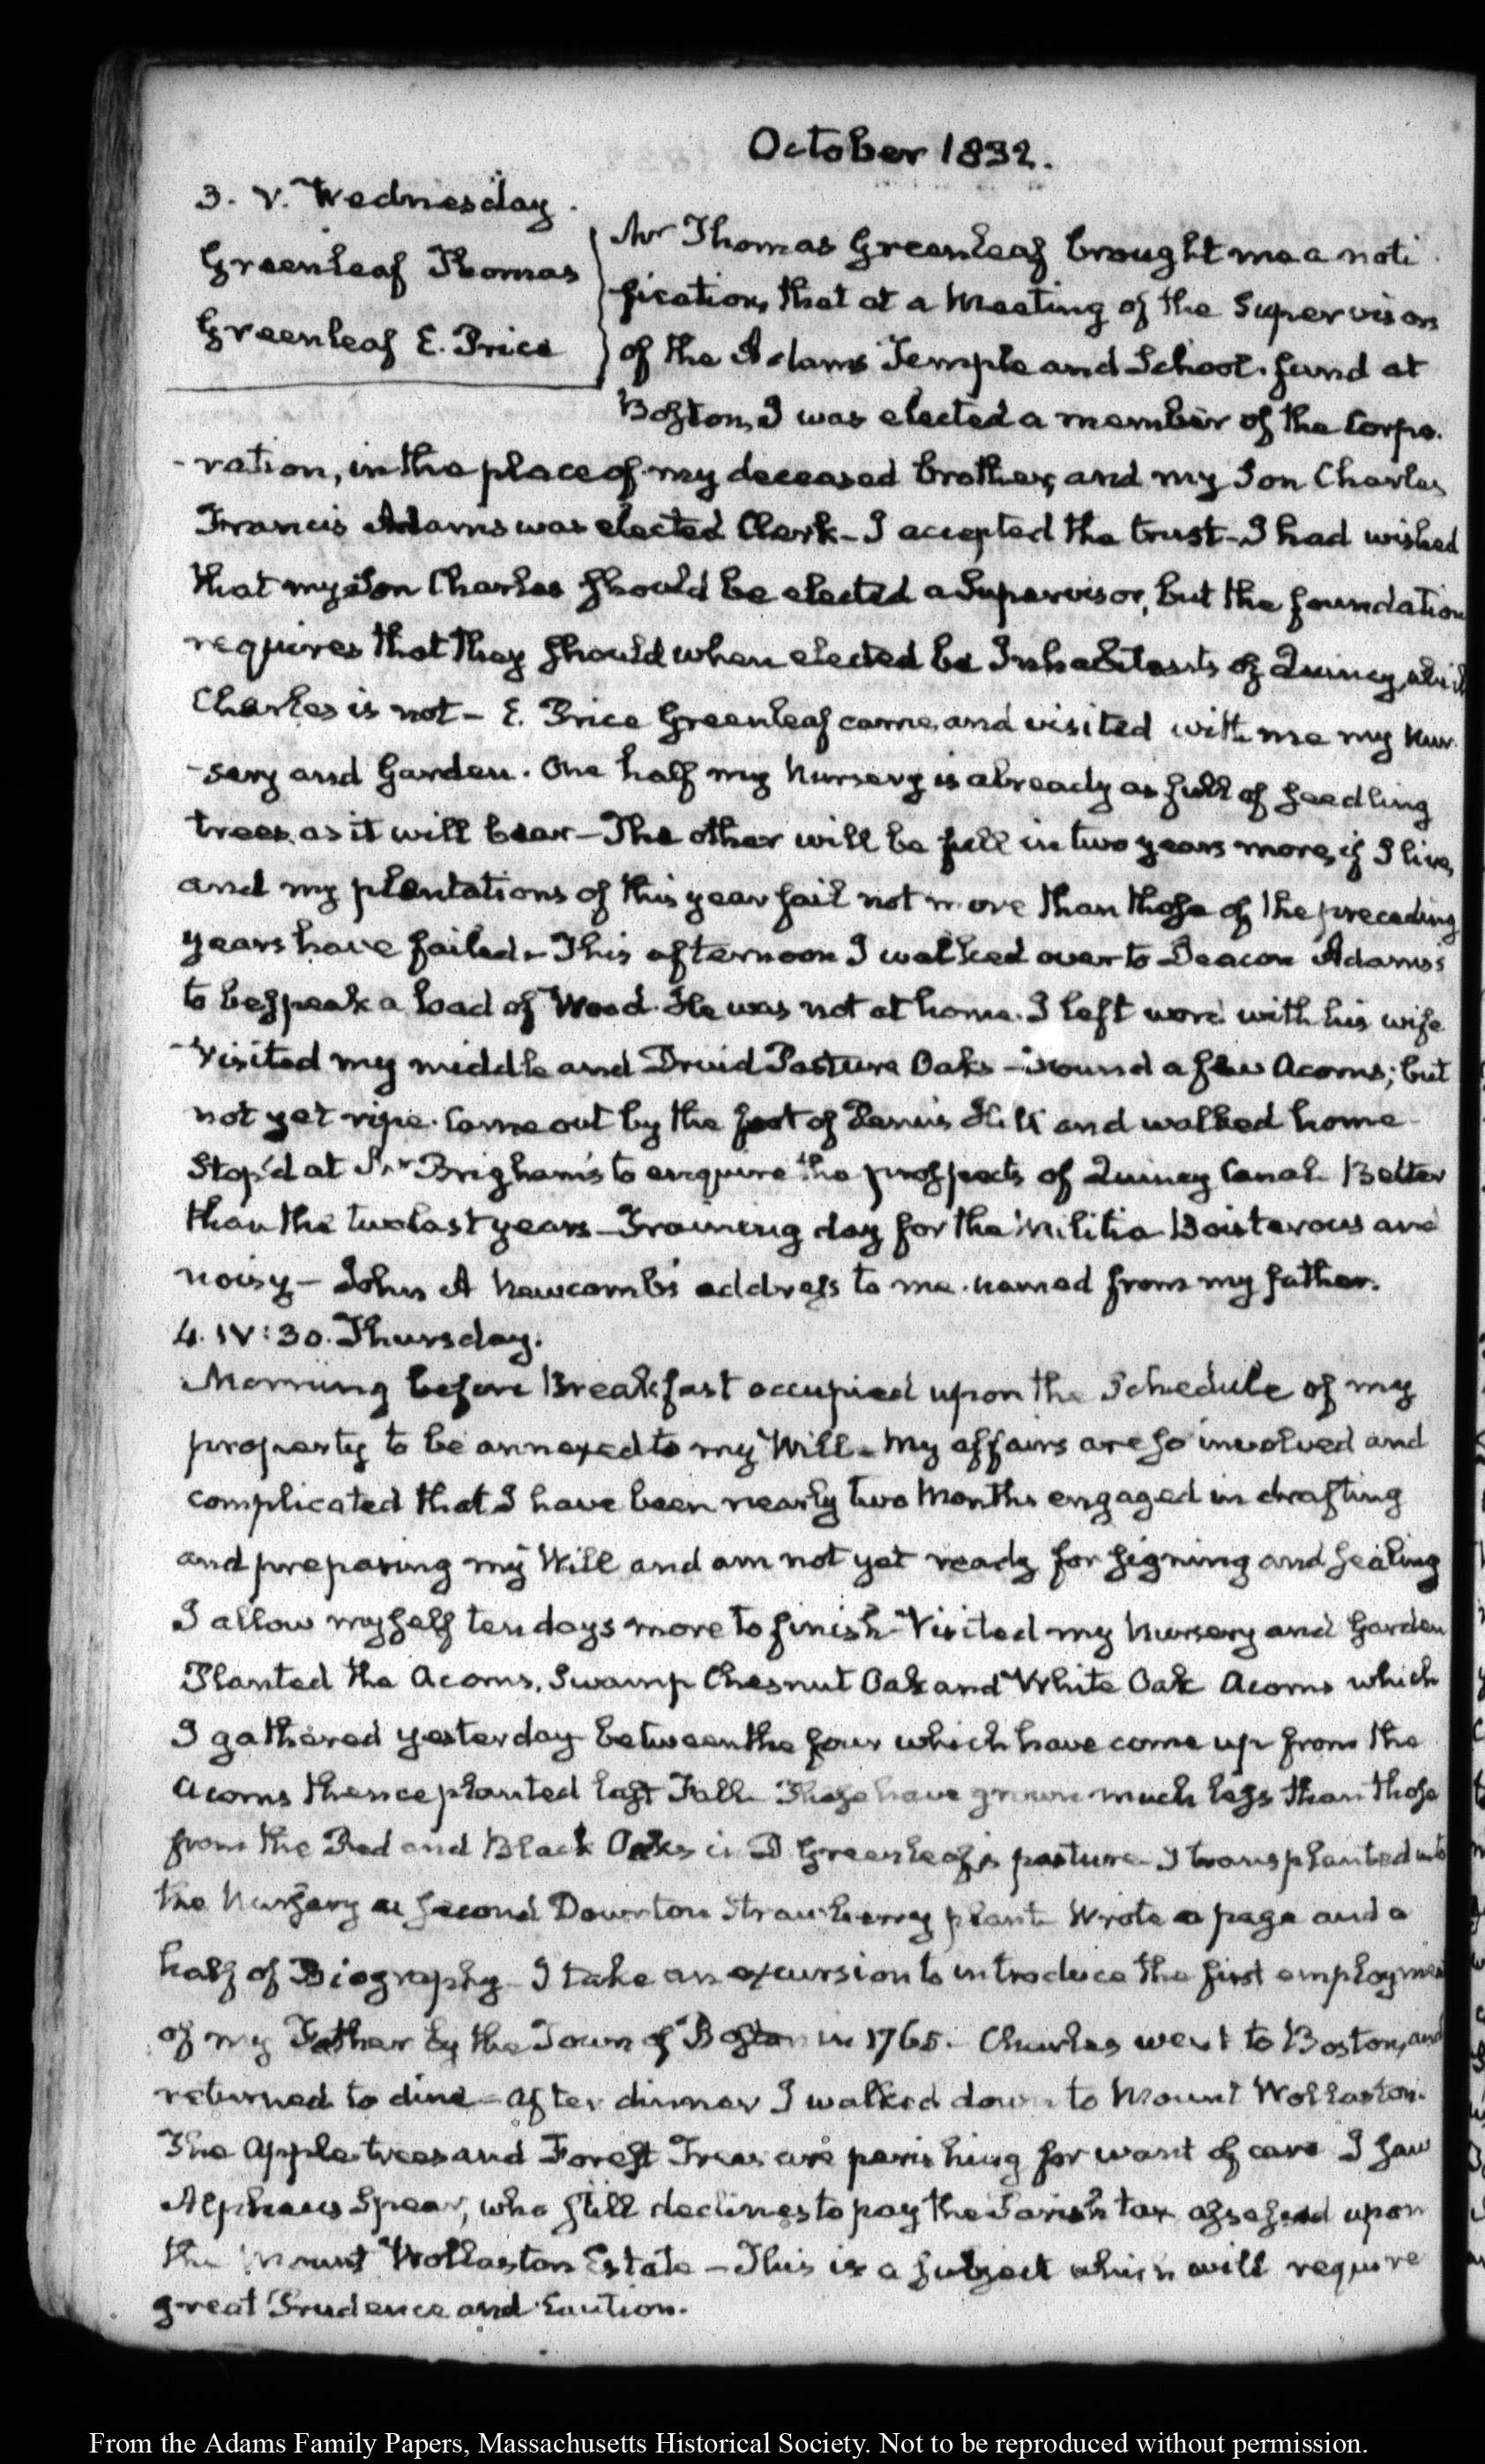 October 1832.
3. V. Wednesday.
Greenleaf Thomas
Greenleaf E. Price
Mr Thomas Greenleaf brought me a noti
fication, that at a Meeting of the Supervisors
of the Adams Temple and School fund at
Boston, I was elected a member of the Corpo-
-ration, in the place of my deceased brother, and my Son Charles
Francis Adams was elected Clerk - I accepted the trust - I had wished
that my Son Charles should be elected a Supervisor, but the foundation
requires that they should when elected be Inhabitants of Quincy, which
Charles is not - E. Price Greenleaf came, and visited with me my Nur-
-sery and Garden. One half my Nursery is already as full of seedling
trees as it will bear - The other will be full in two years more, if I live,
and my plantations of this year fail not more than those of the preceding
years have failed - This afternoon I walked over to Deacon Adams's
to bespeak a load of Wood. He was not at home. I left word with his wife
- Visited my middle and Druid Pasture Oaks - Found a few Acorns; but
not yet ripe. Came out by the foot of Penn's Hill and walked home -
Stop'd at Mr Brigham's to enquire the prospects of Quincy Canal. Better
than the two last years - Training day for the Militia Boisterous and
noisy - John A Newcomb's address to me. named from my father.
4. IV:30. Thursday.
Morning before Breakfast occupied upon the Schedule of my
property to be annexed to my Will - My affairs are so involved and
complicated that I have been nearly two Months engaged in drafting
and preparing my Will and am not yet ready for signing and sealing
I allow myself ten days more to finish - Visited my Nursery and Garden
Planted the Acorns, Swamp Chesnut Oak and White Oak Acorns which
I gathered yesterday between the four which have come up from the
Acorns thence planted last Fall - These have grown much less than those
from the Red and Black Oaks in D Greenleaf's pasture - I transplanted into
the Nursery a second Downton Strawberry plant - Wrote a page and a
half of Biography - I take an excursion to introduce the first employment
of my Father by the Town of Boston in 1765. - Charles went to Boston, and
returned to dine - After dinner I walked down to Mount Wollaston.
The Apple trees and Forest Trees are perishing for want of care I saw
Alpheus Spear, who still declines to pay the Parish tax assessed upon
the Mount Wollaston Estate - This is a subject which will require
great Prudence and Caution.
From the Adams Family Papers, Massachusetts Historical Society. Not to be reproduced without permission.